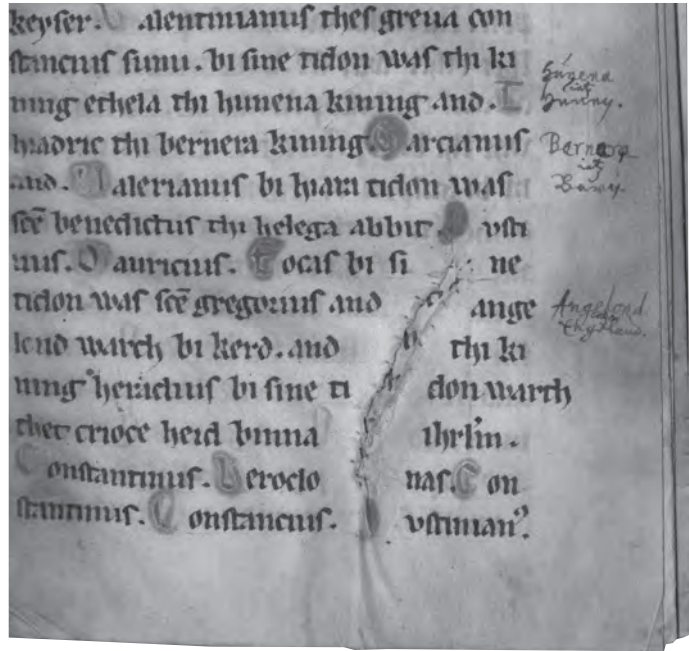 keyſer. Valentinianuſ theſ greua con
ſtanciuſ ſunu. bi ſine tidon waſ thi ki
ning ethela thi hunena kining and. T
hiadric thi bernera kining. Marcianuſ
and. Valerianuſ bi hiara tidon waſ
ſc̄e benedictuſ thi helega abbit. Iuſti
nuſ. Mauriciuſ. Focaſ bi ſi ne
tidon waſ ſc̄e gregoriuſ and ange
lond warth bi kerd. and thi ki
ning heracliuſ bi ſine ti don warth
thet crioce heid binna ihrlm̄.
Conſtantinuſ. Heroclo naſ. Con
ſtantinuſ. Conſtanciuſ. Iuſtinianꝰ.
Hunny.
Angelond